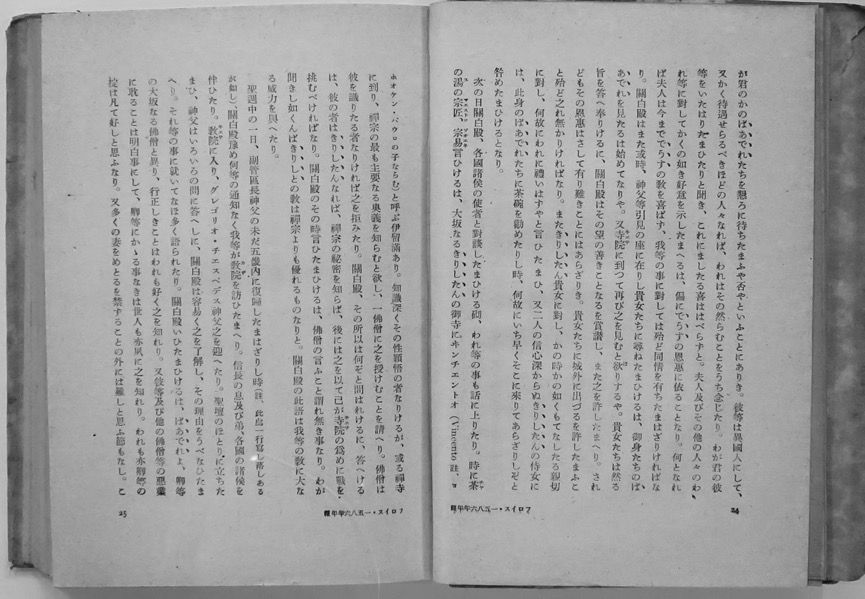 が君のかのばあでれたちを懇ろに待ちたまふや否やといふことにありき。彼等は異國人にして、
又かく待遇せらるべきほどの人々なれば、われはその然らむことをうち念じたり。わが君の彼
等をいたはりたまひたりと聞き、これにましたる喜ははべらずと。夫人及びその他の人々のわ
れ等に對してかくの如き好意を示したまへるは、偏にでうすの恩惠に依ることなり。何となれ
ば夫人は今まででうすの敎を喜ばず、我等の事に對しては殆ど同情を有ちたまはざりければな
り。關白殿はまた或時、神父等引見の座に在りし貴女たちに尋ねたまひけるは、御身たちのば
あでれを見たるは始めてなりや。又寺院に到つて再び之を見むと欲りするや。貴女たちは然る
旨を答へ奉りけるに、關白殿はその望の善きことなるを賞讃し、また之を許したまへり。され
どもその恩惠はさして有り難きことにはあらざりき。貴女たちに城外に出づるを許したまふこ
と殆ど之れ無かりければなり。またきりしたん貴女に對し、かの時かの如くもてなしたる親切
に對し、何故にわれに禮いはずやと言ひたまひ、又二人の信心深からぬきりしたんの侍女に
は、此身のばあでれたちに茶碗を勸めたりし時、何故にいち早くそこに來りてあらざりしぞと
咎めたまひけるとなり。
次の日關白殿、各國諸侯の使者と對談したまひける砌、われ等の事も話に上りたり。時に茶
の湯の宗匠、宗易言ひけるは、大坂なるきりしたんの御寺にギンチエントオ (Vincento 註、ヨ
24
フロイス・一五八六年年報
ホオケン・パウロの子ならむ)と呼ぶ伊留滿あり。知識深くその性穎悟の者なりけるが、或る禪寺
に到り、禪宗の最も主要なる奧義を知らむと欲し、一佛僧に之を授けむことを請へり。佛僧は
彼を識りたる者なりければ之を拒みたり。關白殿、その所以は何ぞと問はれけるに、答へける
は、彼の者はきりしたんなれば、禪宗の秘密を知らば、後には之を以て己が寺院の爲めに戰を
挑むべければなり。關白殿のその時言ひたまひけるは、佛僧の言ふこと謂れ無き事なり。わが
聞きし如くんばきりしとの敎は禪宗よりも優れるものなりと。關白殿の此語は我等の敎に大な
る威力を與へたり。
聖週中の一日、副管區長神父の未だ五畿內に復歸したまはざりし時(註、此處一行寫し落しある
が如し)、關白殿豫め何等の通知なく我等が敎院を訪ひたまへり。信長の息及び弟、各國の諸侯を
伴ひたり。敎院に入り、グレゴリオ・チェスペデス神父之を迎へたり。聖壇のほとりに立ちた
まひ、神父はいろいろの問に答へしに、關白殿は容易く之を了解し、その理由をうべなひたま
へり。それ等の事に就いてなほ多く語られたり。關白殿いひたまひけるは、ばあでれよ、卿等
の大坂なる佛僧と異り、行正しきことはわれも好く之を知れり。又彼等及び他の佛僧等の惡業
に耽ることは明白事にして、卿等にかゝる事なきは世人も亦夙に之を知れり。われも亦卿等の
掟は凡て好しと思ふなり。又多くの妻をめとるを禁ずることの外には難しと思ふ節もなし。こ
フロイス・一五八六年年報
25